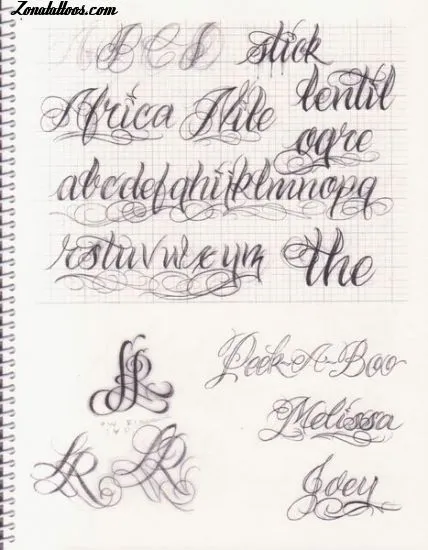 Zonatattoos.com
A B C D stick
Africa Nile lentil
ogre
abcdefghijklmnopq
rstuvwxyz
the
LR
Peek-A-Boo
LR LR
Melissa
Joey